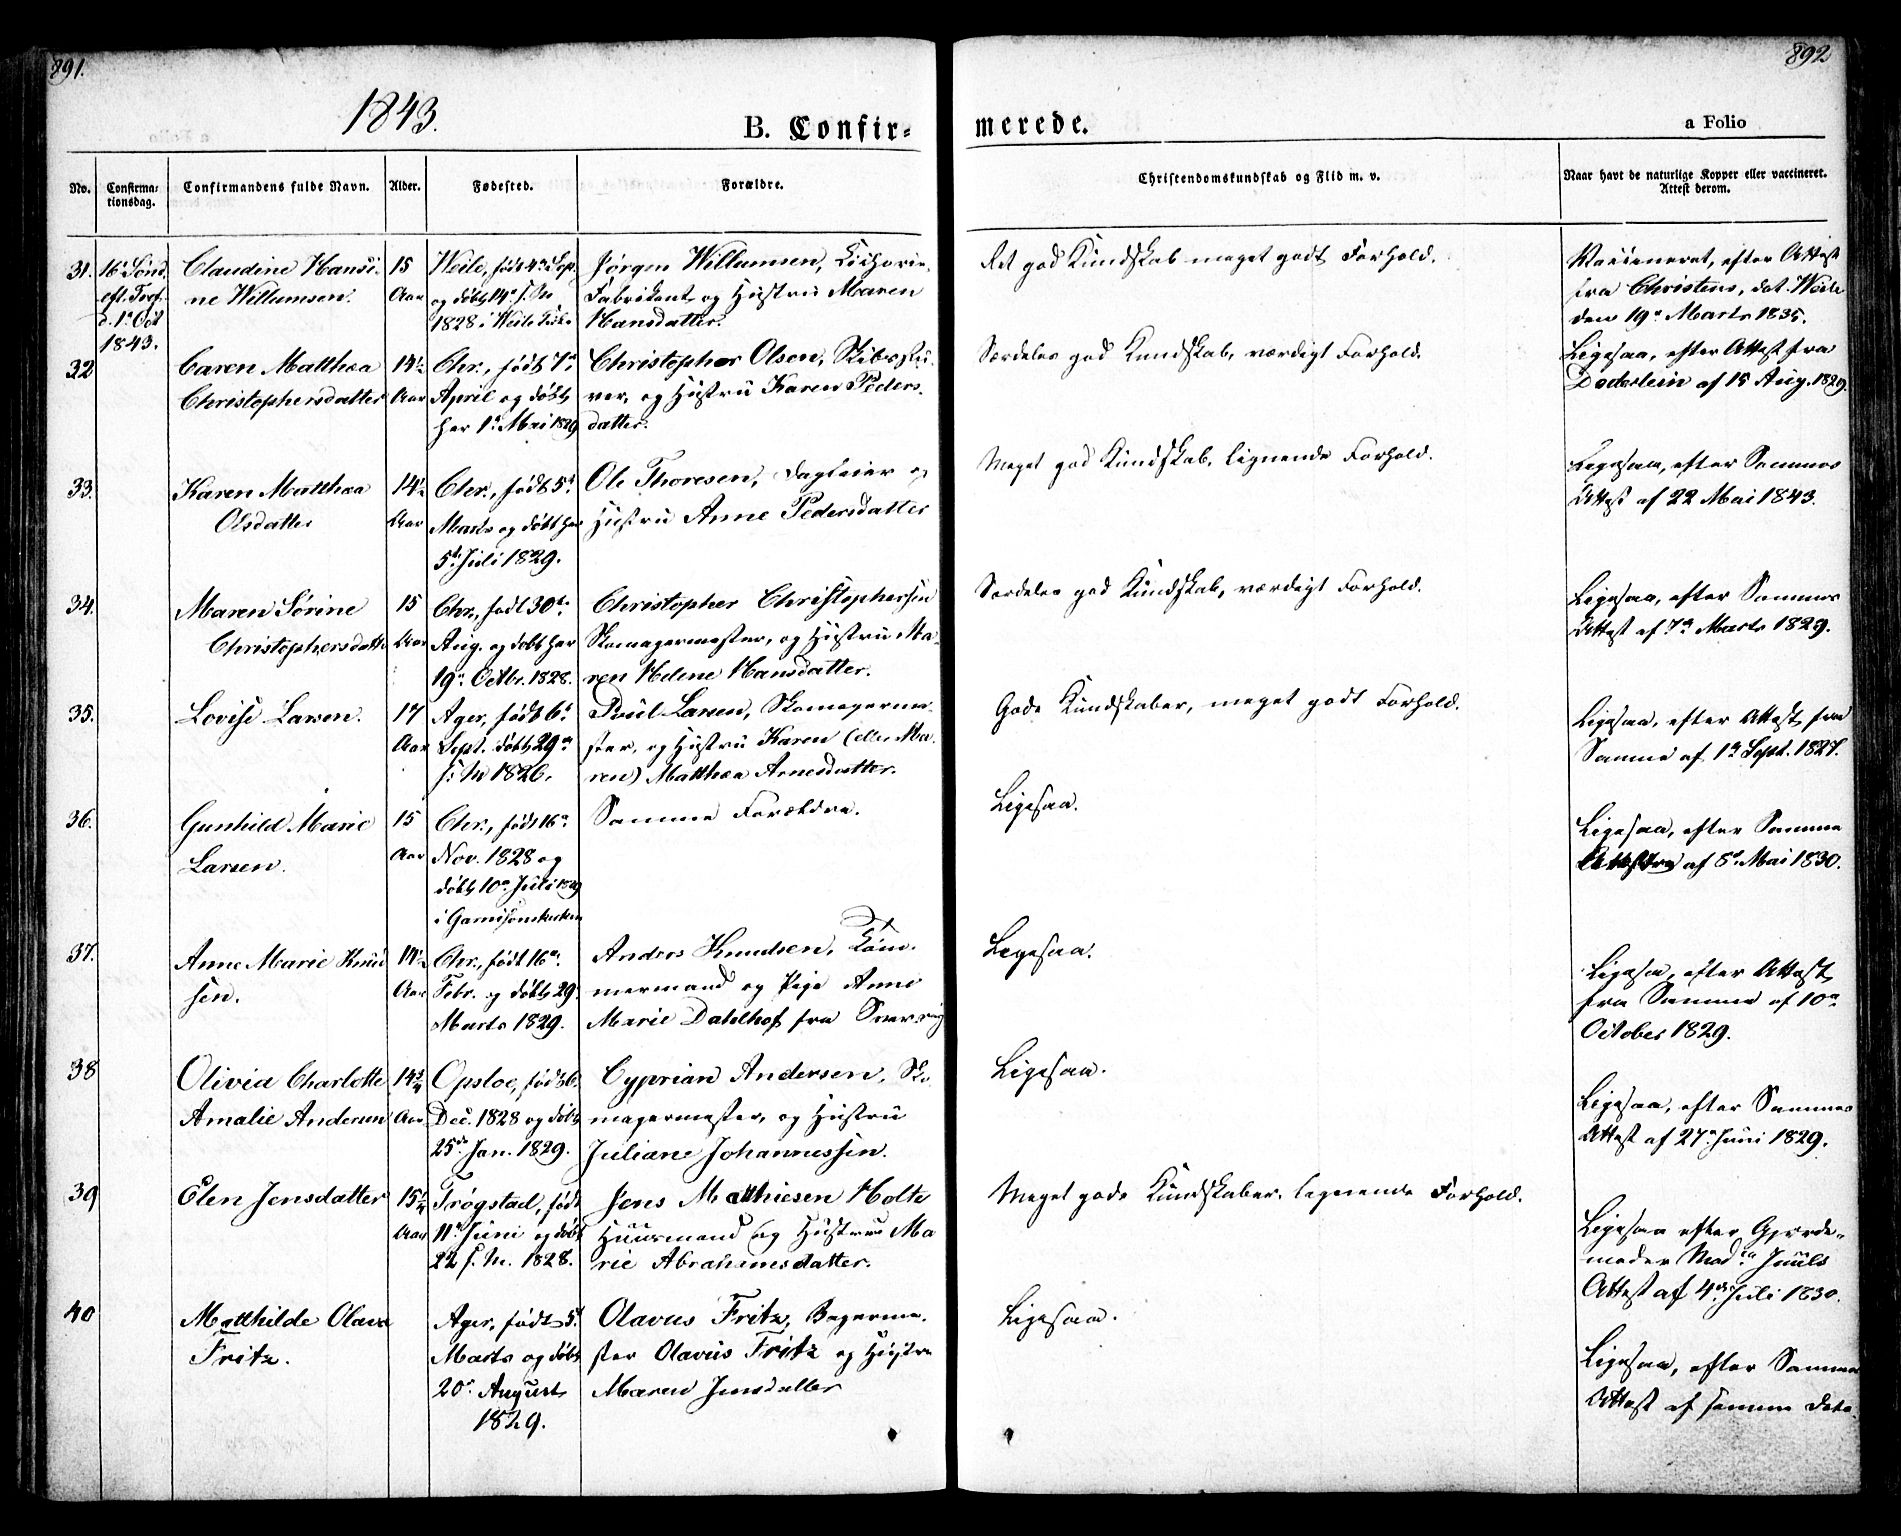 891.
892
1843.
B. Confir-
merede.
a Folio
No.
Confirma-
tionsdag.
Confirmandens fulde Navn.
Alder.
Fødested.
Forældre.
Christendomskundskab og Flid m. v.
Naar havt de naturlige Kopper eller vaccineret.
Attest derom.
31.
16 Sønd.
eft. Tref.
d. 1ª Oct
1843.
Claudine Hansi-
ne Willumsen.
15
Aar
Weile, født 4de Sep.
og døbt 14ª s. M.
1828 i Weile
Jørgen Willumsen, Cichorie-
Fabrikant og Hustru Maren
Hansdatter.
Ret god Kundskab meget godt Forhold.
Vaccineret, efter Attest
fra Christens, dat. Weile
den 19ª Marts 1835.
32
Caren Matthea
Christophersdatter
14½
Aar
Chr., født 7ª
April og døbt
her 1ª Mai 1829
Christopher Olsen,
og Hustru Karen Peders-
datter.
Særdeles god Kundskab, værdigt Forhold.
Ligesaa, efter Attest fra
Døderlein af 15 Aug. 1829.
33.
Karen Matthea
Olsdatter
14½
Aar
Chr., født 5t
Marts og døbt her
5te Juli 1829.
Ole Thoresen, Dagleier og
Hustru Anne Pedersdatter
Meget god Kundskab, lignende Forhold.
Ligesaa, efter Sammes
Attest af 22 Mai 1843.
34.
Maren Sørine
Christophersdatt
15
Aar
Chr., født 30te
Aug. og døbt her
19ª Octbr. 1828.
Christopher Christophersen
Skomagermester, og Hustru Ma-
ren Helene Hansdatter.
Særdeles god Kundskab, værdigt Forhold.
Ligesaa, efter Sammes
Attest af 7ª Marts 1829.
35.
Lovise Larsen.
17
Aar
Ager, født 6ª
Sept. døbt 29ª
s. M 1826.
Poul Larsen, Skomagerme-
ster, og Hustru Karen (eller Ma-
ren) Matthea Arnesdatter.
Gode Kundskaber, meget godt Forhold.
Ligesaa, efter Attest fra
Samme af 1ª Sept. 1827.
36.
Gunhild Marie
Larsen.
15
Aar
Chr., født 16ª
Nov. 1828 og
døbt 10ª Juli 1829
i Garnisonskirken
Samme Forældre.
Ligesaa.
Ligesaa, efter Samme
af 8ª Mai 1830.
37.
Anne Marie Knud
sen.
14½
Aar
Chr., født 16ª
Febr. og døbt 29.
Marts 1829.
Anders Knudsen, Tøm-
mermand og Pige Anne
Marie Dahlhof fra Sverrig
Ligesaa.
Ligesaa, efter Attest
fra Samme af 10ª
October 1829.
38
Olivia Charlotte
Amalie Andersen
14¾
Aar
Opsloe, født 6.
Dec. 1828 og døbt
25de Jan. 1829.
Cyprian Andersen, Sko-
magermester, og Hustru
Juliane Johannessen.
Ligesaa.
Ligesaa, efter Sammes
Attest af 27ª Juni 1829.
39
Elen Jensdatter
15¼
Aar
Trøgstad, født
11te Juni og døbt
22 s. M. 1828.
Jens Matthiesen Holte
Huusmand og Hustrue Ma
rie Abrahamsdatter.
Meget gode Kundskaber, lignende Forhold.
Ligesaa efter Gjorde-
moder Mad. Juuls
Attest af 4de Juli 1830.
40
Matthilde Olava
Fritz.
Ager, født 5t
Marts og døbt
20ª August
1829.
Olavus Fritz, Bagerme-
ster Olavus Fritz og Hustru
Maren Jensdatter
Ligesaa.
Ligesaa, efter Samme
Attest af samme Dato.